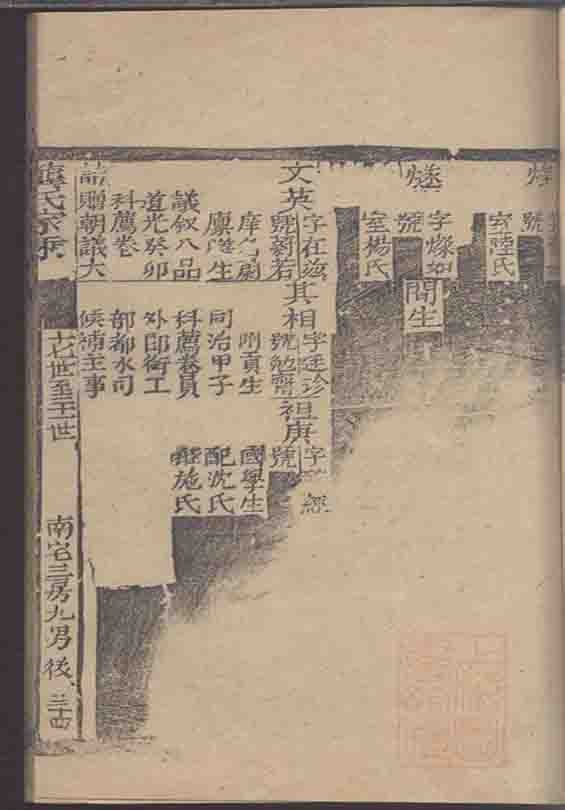 號
室陸氏
燧
字燦如
號
室楊氏
閏生
文英
字在茲
號蓊若
庠名勵
廩膳生
議敘八品
道光癸卯
科薦卷
誥贈朝議大
其相
字廷珍
號勉齋
附貢生
同治甲子
科薦卷員
外郎銜工
部都水司
候補主事
祖庚
字
經
號
國學生
配沈氏
繼施氏
氏家乘
世至
世
南宅三房九男後